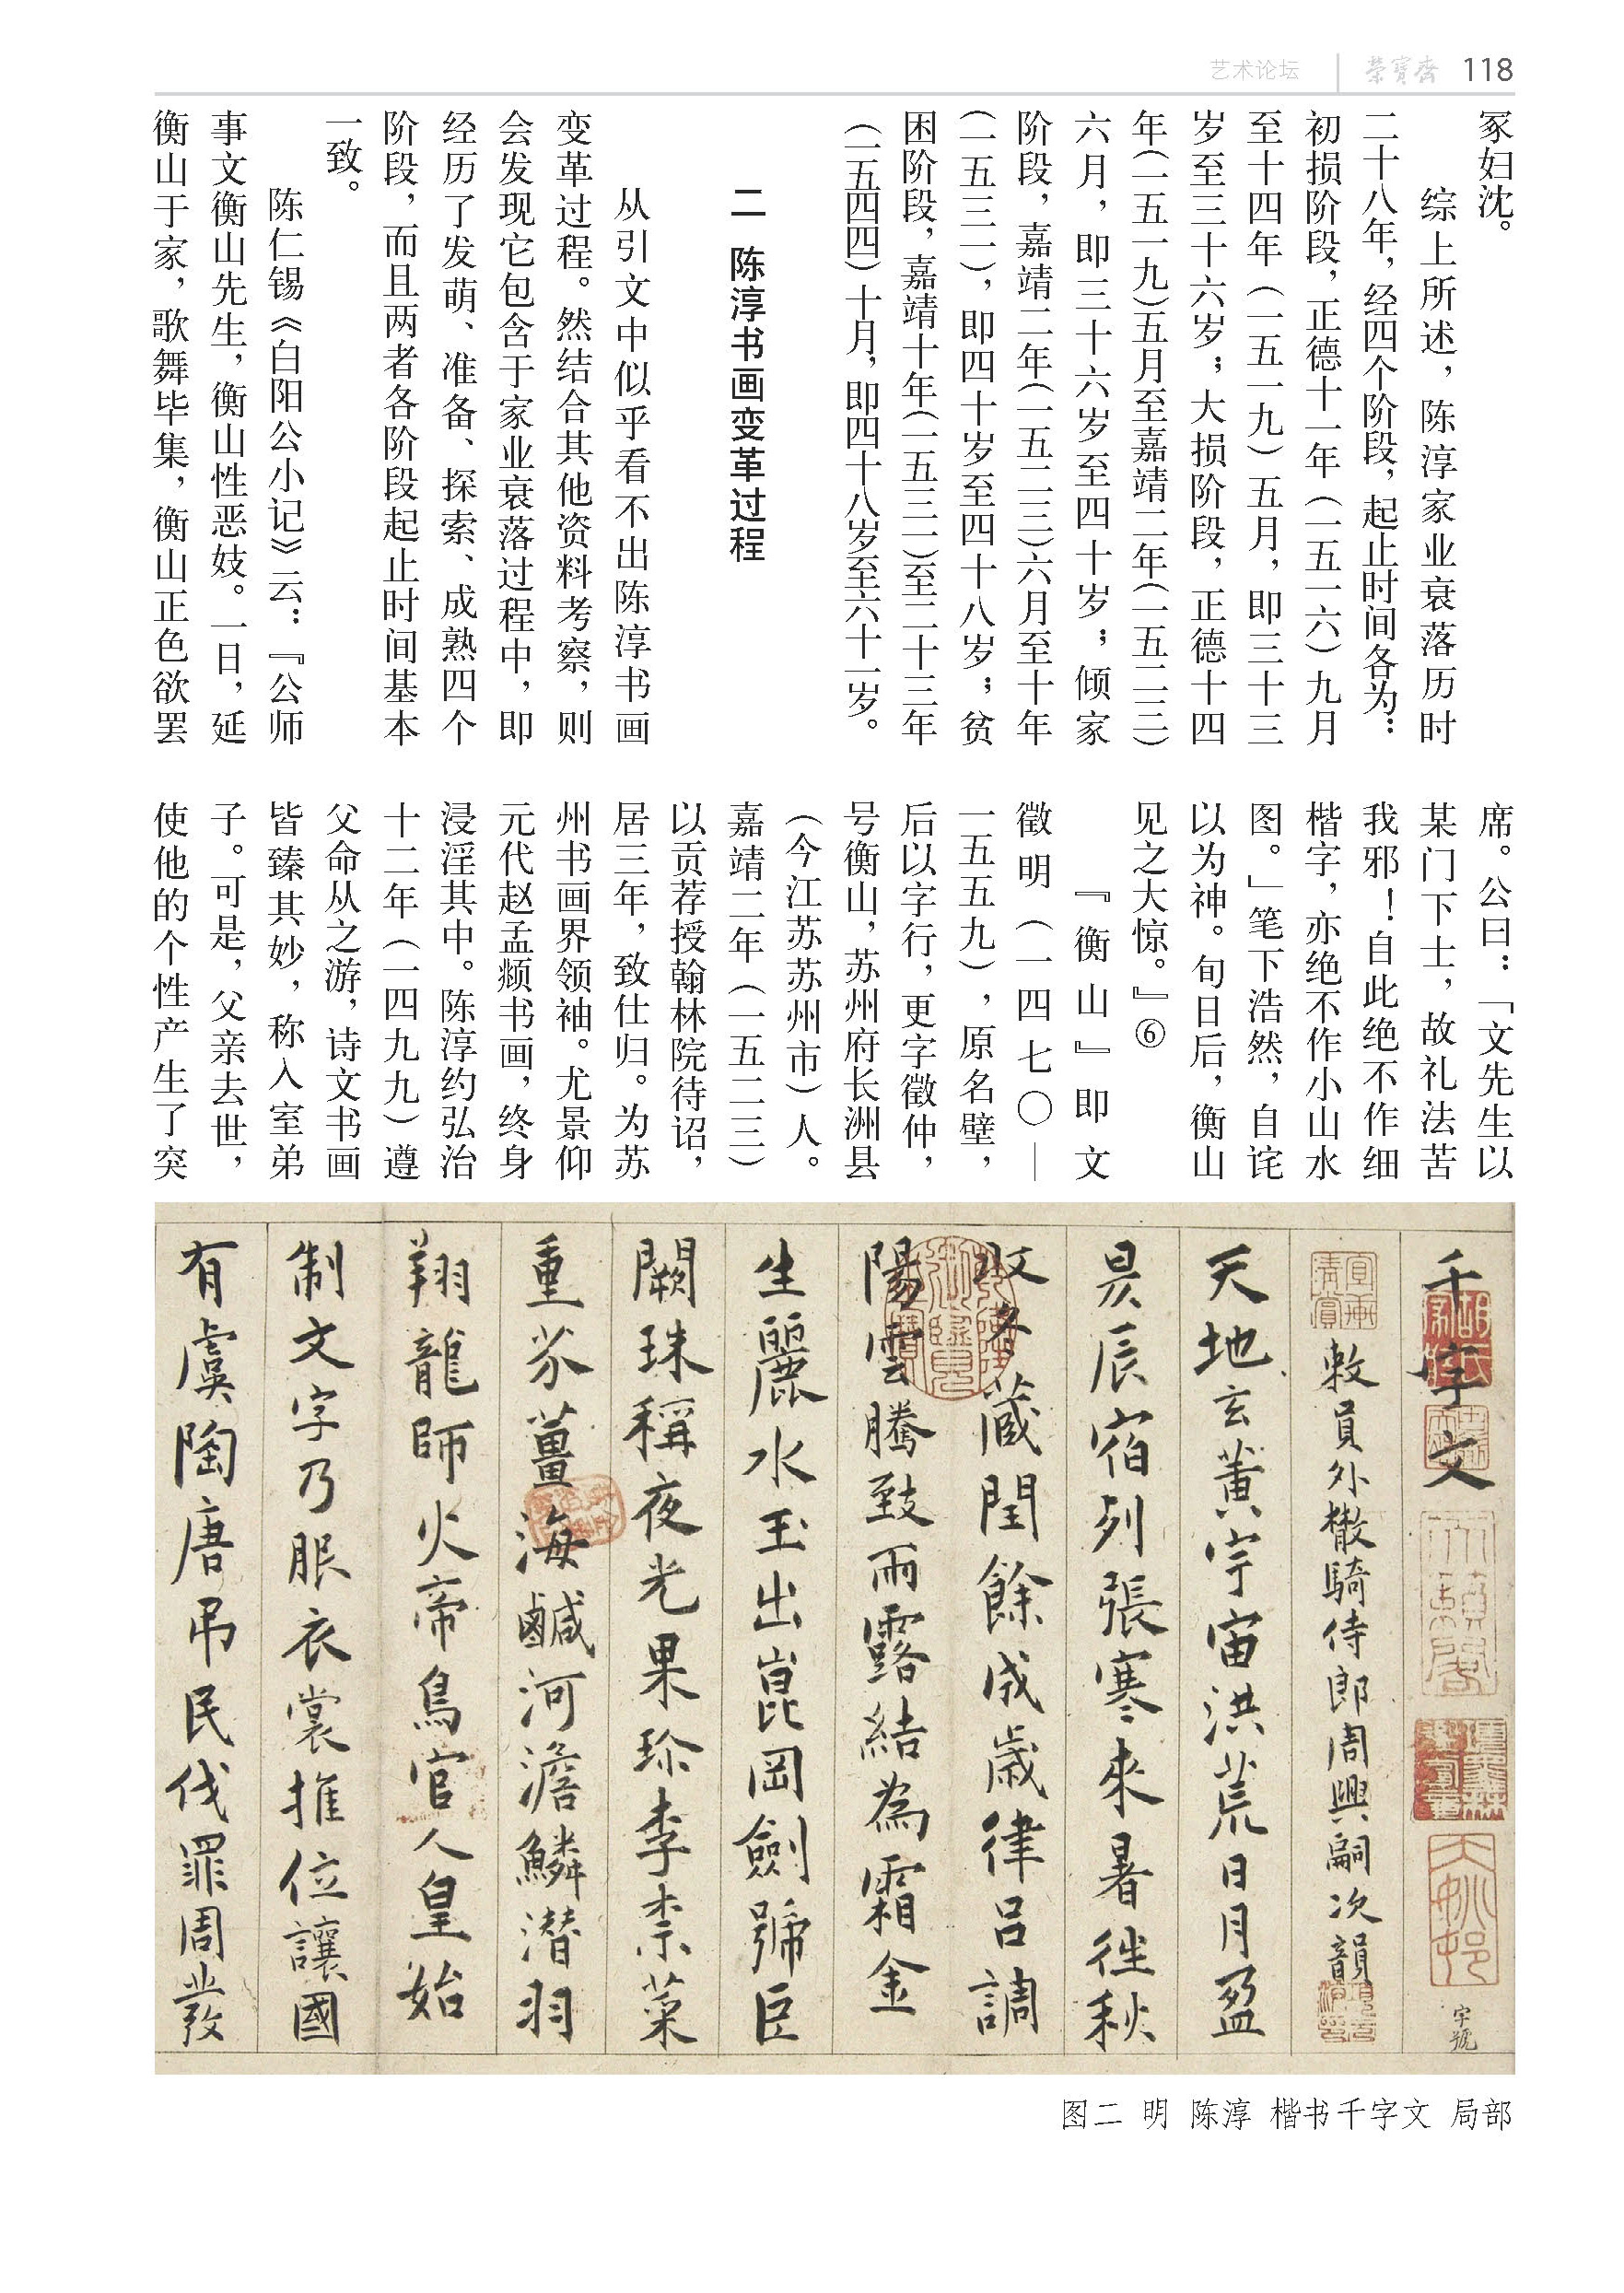 艺术论坛 荣宝斋 118
冢妇沈。
综上所述，陈淳家业衰落历时
二十八年，经四个阶段，起止时间各为：
初损阶段，正德十一年（一五一六）九月
至十四年（一五一九）五月，即三十三
岁至三十六岁；大损阶段，正德十四
年（一五一九）五月至嘉靖二年（一五二三）
六月，即三十六岁至四十岁；倾家
阶段，嘉靖二年（一五二三）六月至十年
（一五三一），即四十岁至四十八岁；贫
困阶段，嘉靖十年（一五三一）至二十三年
（一五四四）十月，即四十八岁至六十一岁。
二 陈淳书画变革过程
从引文中似乎看不出陈淳书画
变革过程。然结合其他资料考察，则
会发现它包含于家业衰落过程中，即
经历了发萌、准备、探索、成熟四个
阶段，而且两者各阶段起止时间基本
一致。
陈仁锡《白阳公小记》云：『公师
事文衡山先生，衡山性恶妓。一日，延
衡山于家，歌舞毕集，衡山正色欲罢
席。公曰：「文先生以
某门下士，故礼法苦
我邪！自此绝不作细
楷字，亦绝不作小山水
图。」笔下浩然，自诧
以为神。旬日后，衡山
见之大惊。』⑥
『衡山』即文
徵明（一四七〇—
一五五九），原名壁，
后以字行，更字徵仲，
号衡山，苏州府长洲县
（今江苏苏州市）人。
嘉靖二年（一五二三）
以贡荐授翰林院待诏，
居三年，致仕归。为苏
州书画界领袖。尤景仰
元代赵孟頫书画，终身
浸淫其中。陈淳约弘治
十二年（一四九九）遵
父命从之游，诗文书画
皆臻其妙，称入室弟
子。可是，父亲去世，
使他的个性产生了突
千字文
字號
敕員外散騎侍郎周興嗣次韻
天地玄黄宇宙洪荒日月盈
昃辰宿列張寒來暑往秋
收冬蔵閏餘成歲律吕調
陽雲騰致雨露結為霜金
生麗水玉出崑岡劍號臣
闕珠稱夜光果珍李柰菜
重芥薑海鹹河澹鱗潜羽
翔龍師火帝鳥官人皇始
制文字乃服衣裳推位讓國
有虞陶唐吊民伐罪周發
图二 明 陈淳 楷书千字文 局部